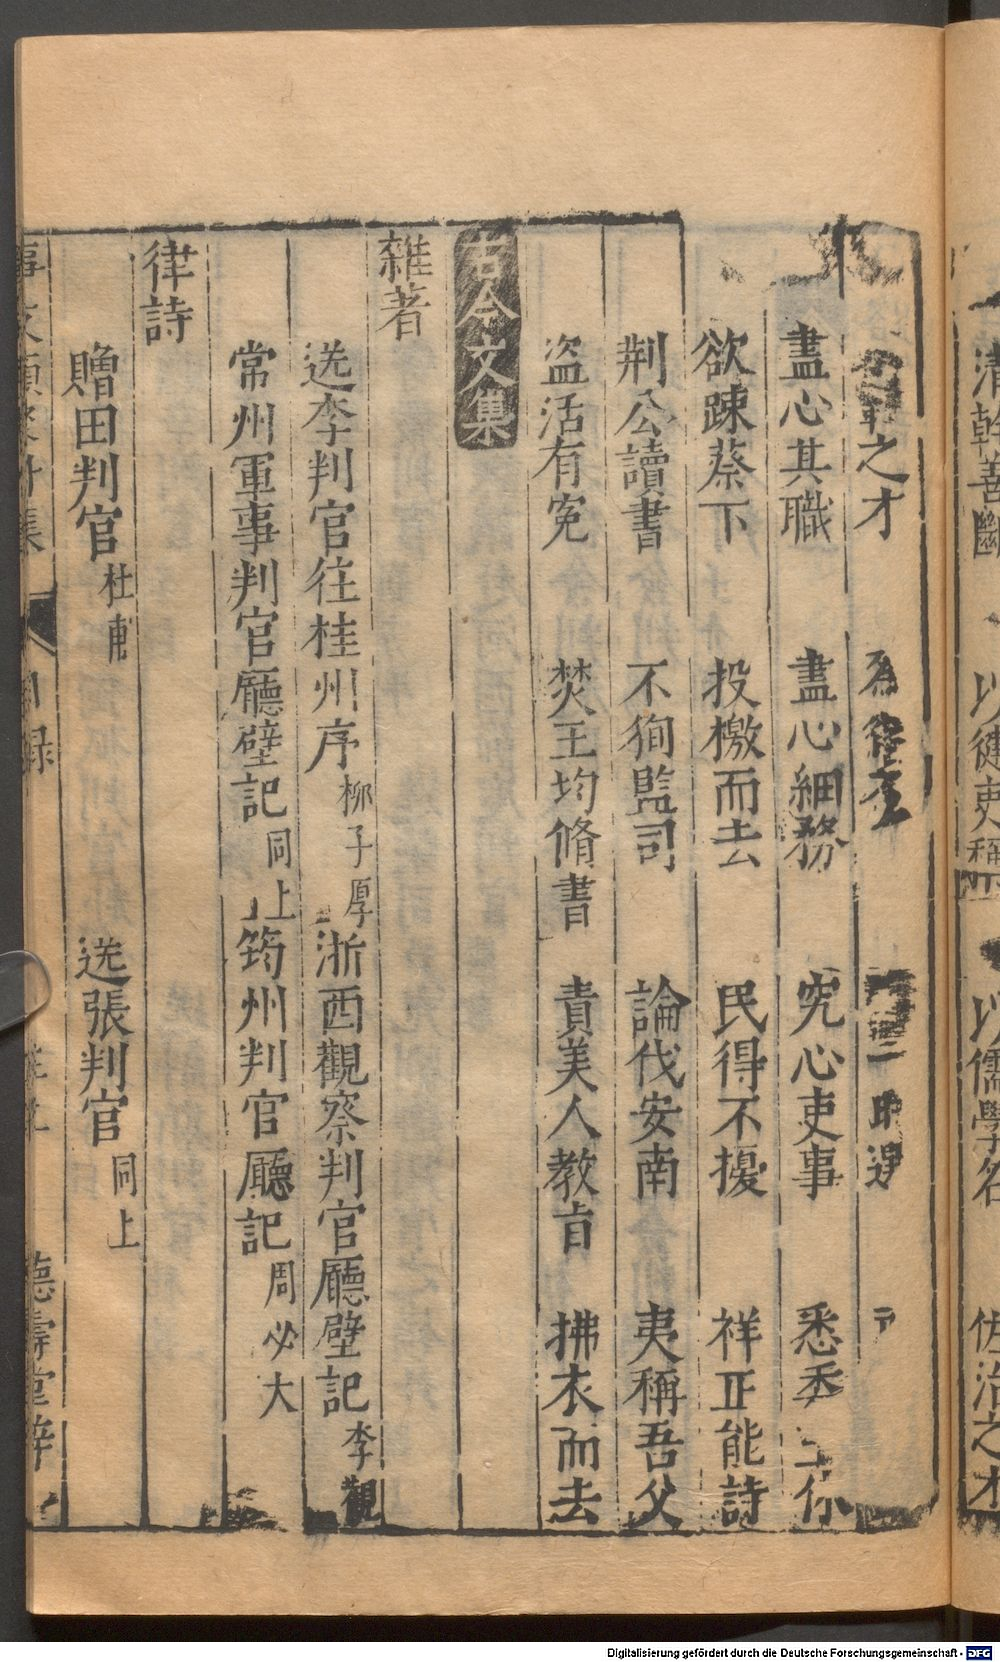 之才
盡心其職　盡心細務　究心吏事　悉
欲踈蔡下　投檄而去　民得不擾　祥正能詩
荆公讀書　不狥監司　論伐安南　夷稱吾父
盗活有寃　焚王均脩書　責美人教㫖　拂衣而去
古今文集
雜著
送李判官往桂州序 柳子厚　浙西觀察判官廳壁記 李觀
常州軍事判官廳壁記 同上　筠州判官廳記 周必大
律詩
贈田判官 杜甫　送張判官 同上
清幹善斷　以健吏稱　以儒學名　佐治之才
Digitalisierung gefördert durch die Deutsche Forschungsgemeinschaft - DFG